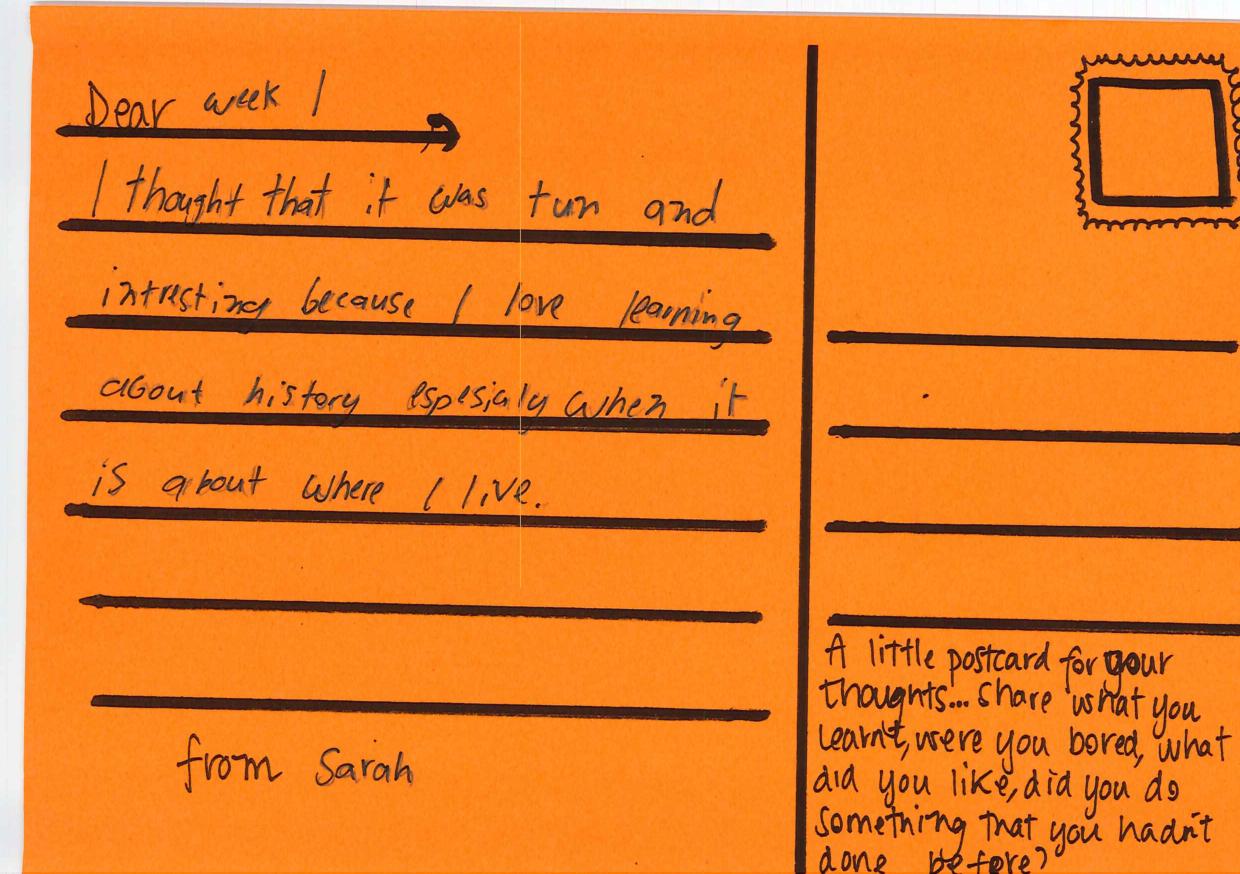 Dear week 1
I thought that it was fun and
intresting because I love learning
about history espesialy when it
is about where I live.
from Sarah
A little postcard for your
thoughts... share what you
learnt, were you bored, what
did you like, did you do
something that you hadn't
done before?